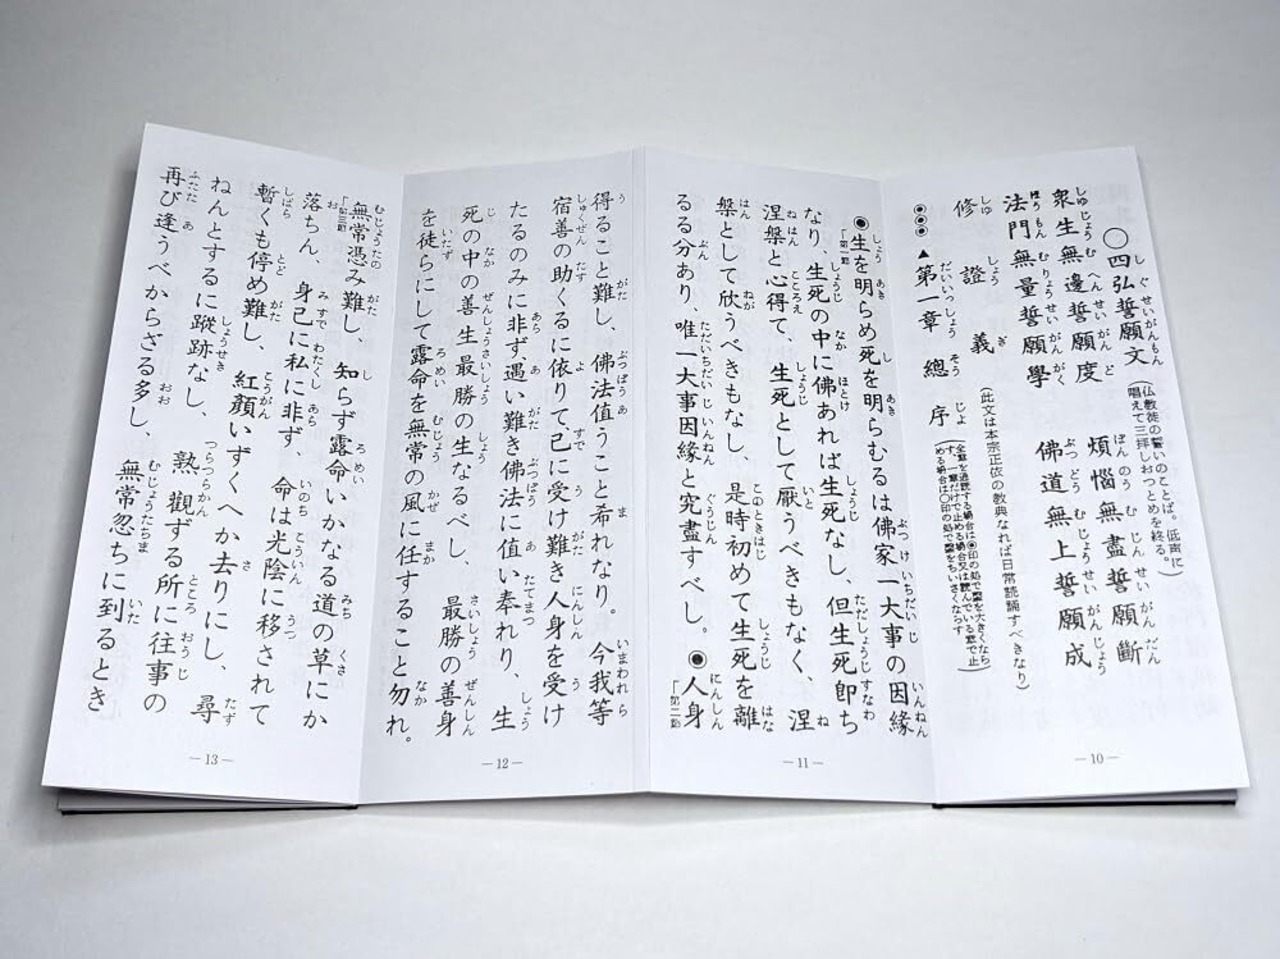 ○四弘誓願文(仏教徒の誓いのことば。低声に唱えて三拝しおつとめを終る。)
衆生無邊誓願度　煩惱無盡誓願斷
法門無量誓願學　佛道無上誓願成
修證義(此文は本宗正依の教典なれば日常読誦すべきなり)
◉◉◉▲第一章　總序
◉生を明らめ死を明らむるは佛家一大事の因緣
「第一節
なり、生死の中に佛あれば生死なし、但生死卽ち
涅槃と心得て、生死として厭うべきもなく、涅
槃として欣うべきもなし、是時初めて生死を離
るる分あり、唯一大事因緣と究盡すべし。◉人身
「第二節
得ること難し、佛法値うこと希れなり。今我等
宿善の助くるに依りて、已に受け難き人身を受け
たるのみに非ず、遇い難き佛法に値い奉れり、生
死の中の善生最勝の生なるべし、最勝の善身
を徒らにして露命を無常の風に任すること勿れ。
無常憑み難し、知らず露命いかなる道の草にか
「第三節
落ちん、身已に私に非ず、命は光陰に移されて
暫くも停め難し、紅顏いずくへか去りにし、尋
ねんとするに蹤跡なし、熟觀ずる所に往事の
再び逢うべからざる多し、無常忽ちに到るとき
—10—
—11—
—12—
—13—